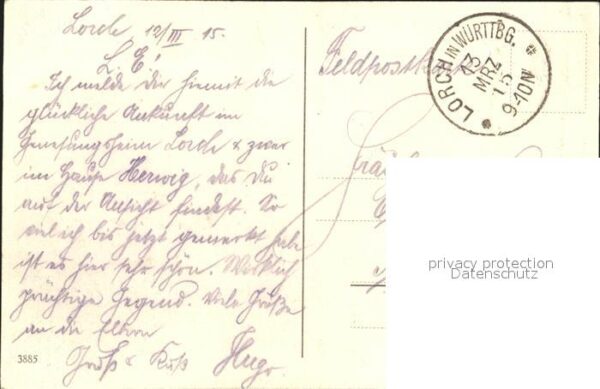 Lorch 12/III 15.
L. E!
Ich melde dir hiemit die
glückliche Ankunft im
Genesungsheim Lorch & zwar
im Hause Herwig, das Du
auf der Ansicht findest. So
viel ich bis jetzt gemerkt habe
ist es hier sehr schön. Wirklich
prächtige Gegend. Viele Grüße
an die Eltern
Gruß & Kuß Hugo.
3885
Feldpostkarte
LORCH IN WÜRTTBG.
13
MRZ
15
9-10N
privacy protection
Datenschutz